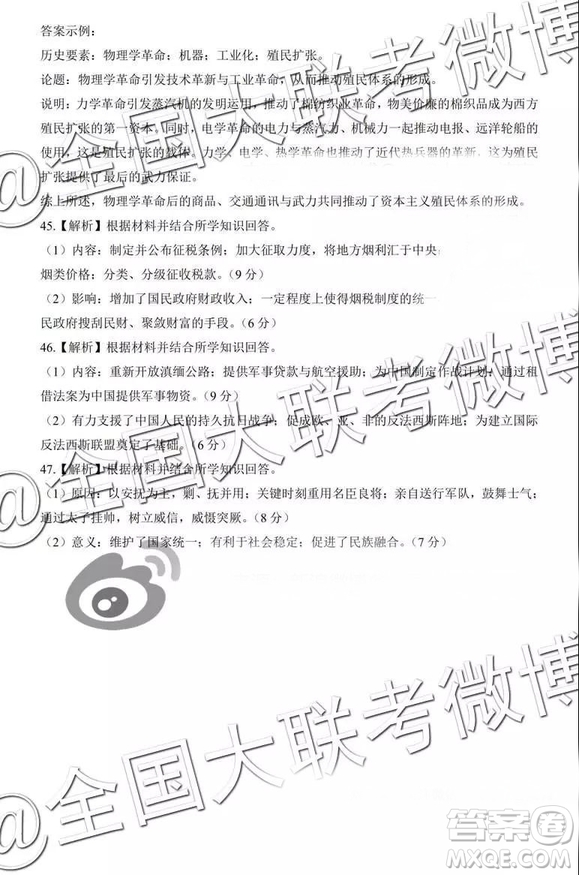 答案示例：
历史要素：物理学革命；机器；工业化；殖民扩张。
论题：物理学革命引发技术革新与工业革命，从而推动殖民体系的形成。
说明：力学革命引发蒸汽机的发明运用，推动了棉纺织业革命，物美价廉的棉织品成为西方
殖民扩张的第一资本。同时，电学革命的电力与蒸汽力、机械力一起推动电报、远洋轮船的
使用，这是殖民扩张的载体。力学、电学、热学革命也推动了近代热兵器的革新，这为殖民
扩张提供了最后的武力保证。
综上所述，物理学革命后的商品、交通通讯与武力共同推动了资本主义殖民体系的形成。
45.【解析】根据材料并结合所学知识回答。
（1）内容：制定并公布征税条例；加大征取力度，将地方烟利汇于中央
烟类价格：分类、分级征收税款。（9 分）
（2）影响：增加了国民政府财政收入；一定程度上使得烟税制度的统一
民政府搜刮民财、聚敛财富的手段。（6 分）
46.【解析】根据材料并结合所学知识回答。
（1）内容：重新开放滇缅公路；提供军事贷款与航空援助；为中国制定作战计划；通过租
借法案为中国提供军事物资。（9 分）
（2）有力支援了中国人民的持久抗日战争；促成欧、亚、非的反法西斯阵地；为建立国际
反法西斯联盟奠定了基础。（6 分）
47.【解析】根据材料并结合所学知识回答。
（1）原因：以安抚为主，剿、抚并用；关键时刻重用名臣良将；亲自送行军队，鼓舞士气；
通过太子挂帅，树立威信，威慑突厥。（8 分）
（2）意义：维护了国家统一；有利于社会稳定；促进了民族融合。（7 分）
@全国大联考微博
@全国大联考微博
@全国大联考微博
答案圈
MXQE.COM